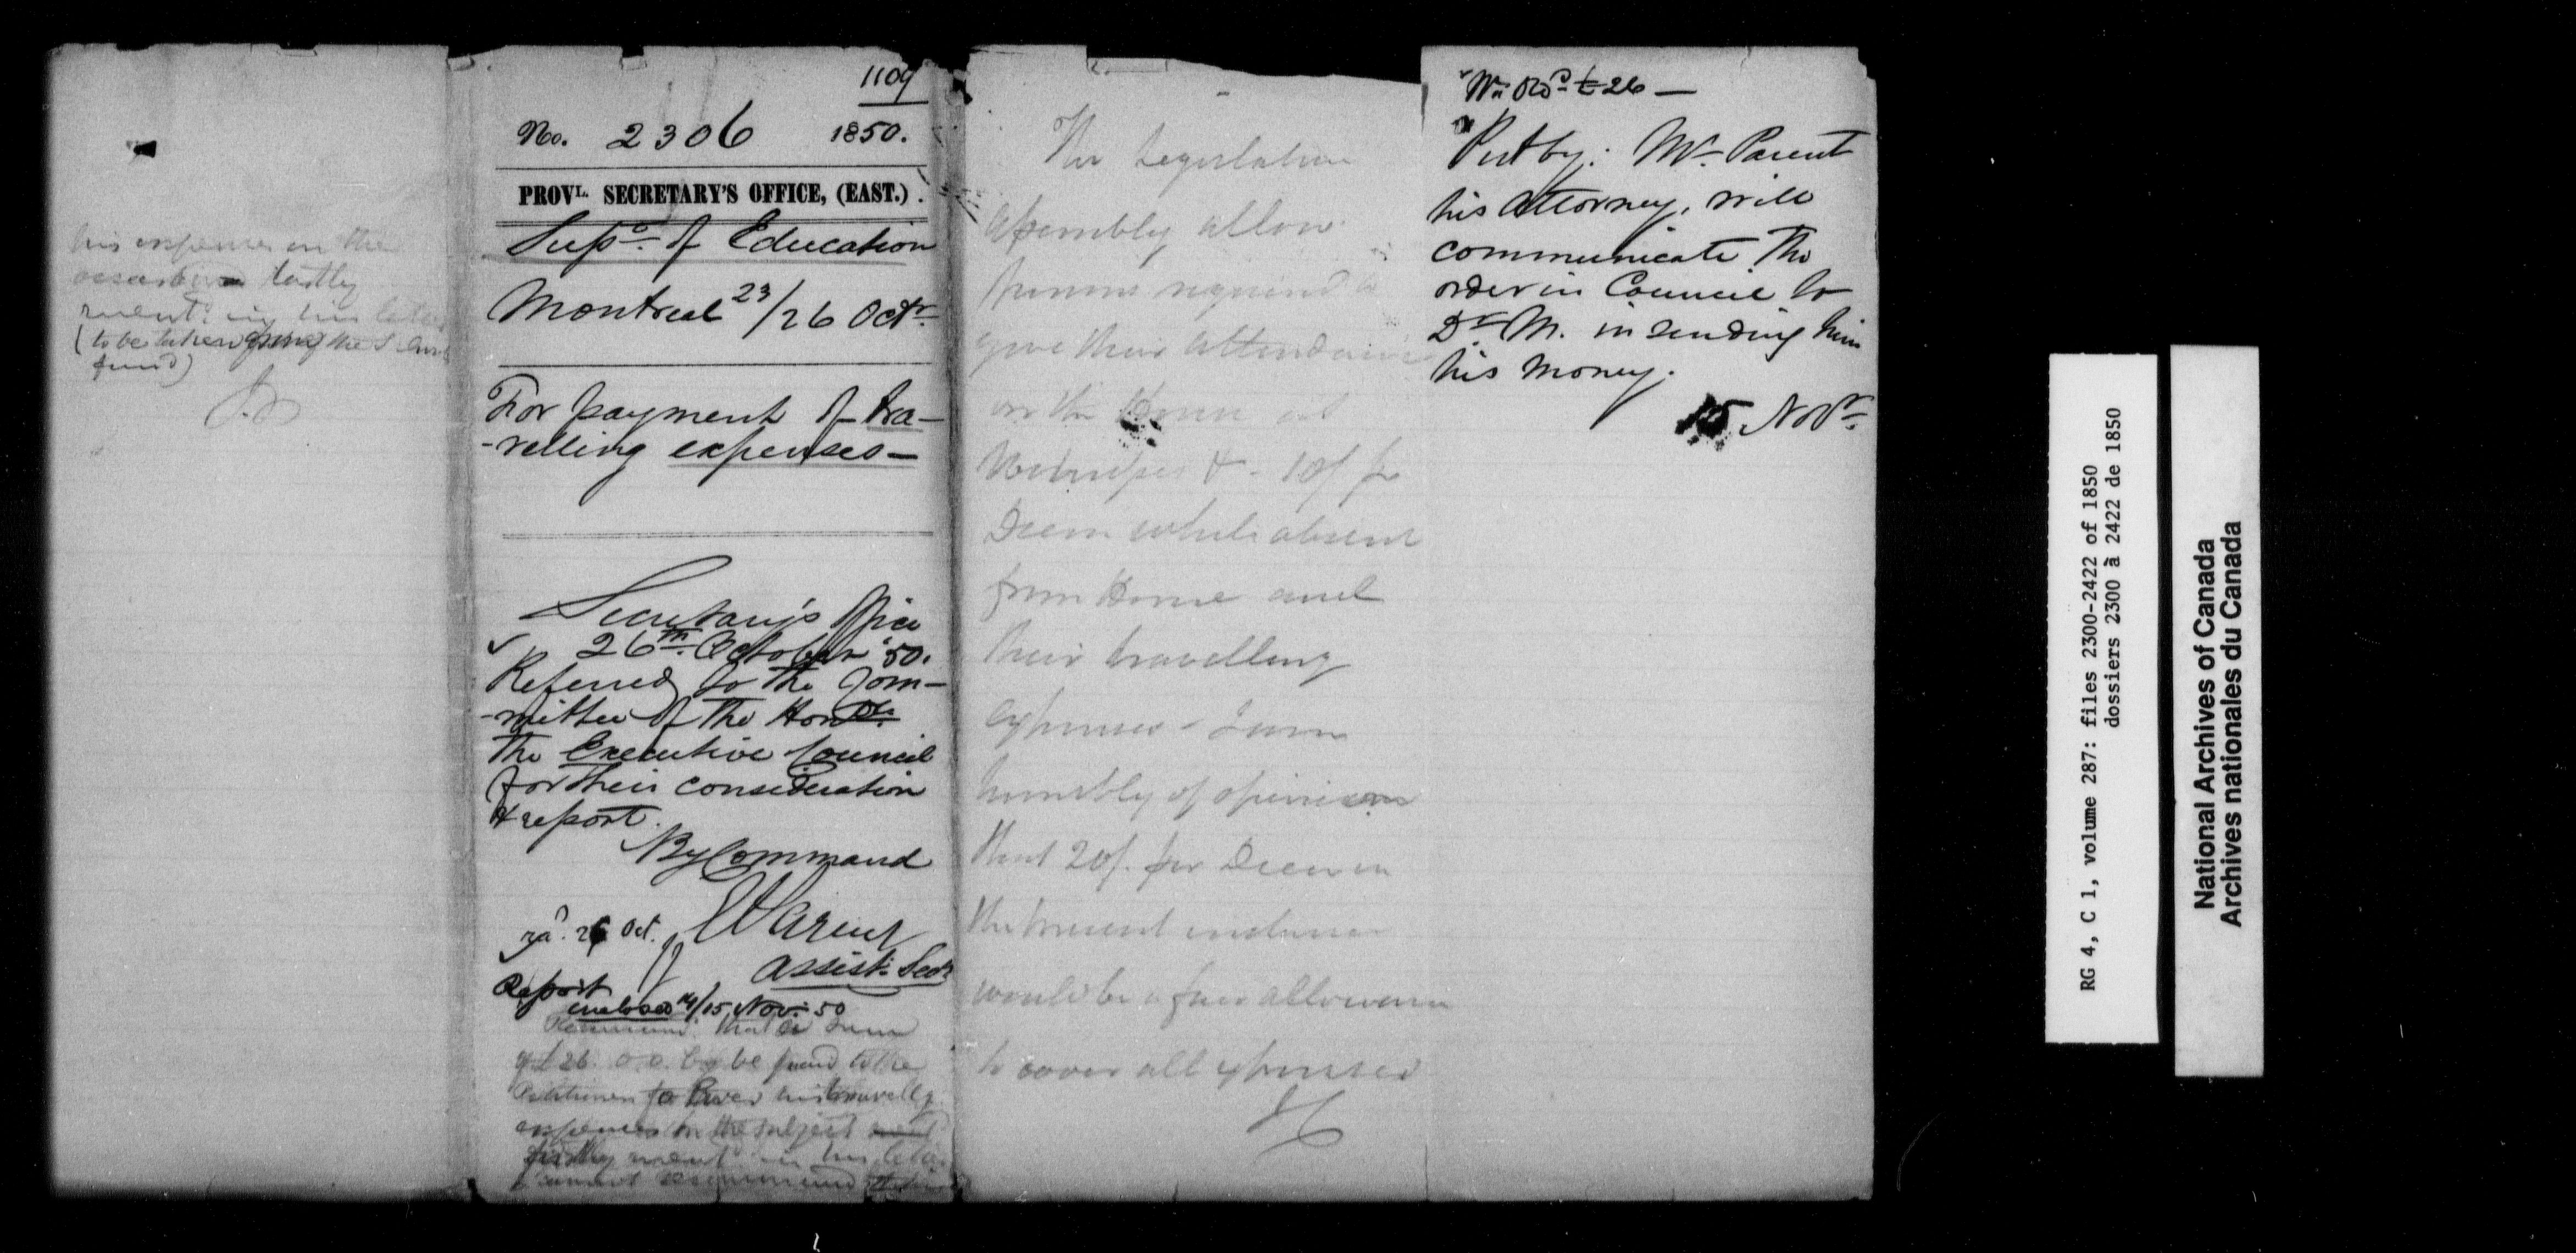 his expenses on the
occasion lastly
ment. in his letter
(to be taken the
fund)
1109
No. 2306 1850.
PROVL. SECRETARY'S OFFICE, (EAST.)
Supt. of Education
Montreal 23/26 Octr.
For payment of tra-
-velling expenses—
Secretary's Office
26th October 50.
Referred to the Com-
-mittee of The Honble.
The Executive Council
for their consideration
& report.
By Command
E Parent
26 Oct.
Assist. Secy
Report
enclosed 14/15 Nov. 50
Recommend. that a sum
of £26. 0. 0. Cy be paid to the
Petitioner to cover his travellg.
expenses on the subject
firstly ment. in his letter
cannot recommend
The Legislative
Assembly allow
persons required to
give their attendance
on the House as
Witnesses &. 10/ per
Diem while absent
from Home and
their travelling
expenses - I am
humbly of opinion
that 20/. per Diem in
the present instance
would be a fair allowance
to cover all expenses
£26 —
Put by: Mr. Parent
his Attorney, will
communicate The
order in Council to
Dr. M. in sending him
his money.
15 Novr.
RG 4, C 1, volume 287: files 2300-2422 of 1850
dossiers 2300 à 2422 de 1850
National Archives of Canada
Archives nationales du Canada